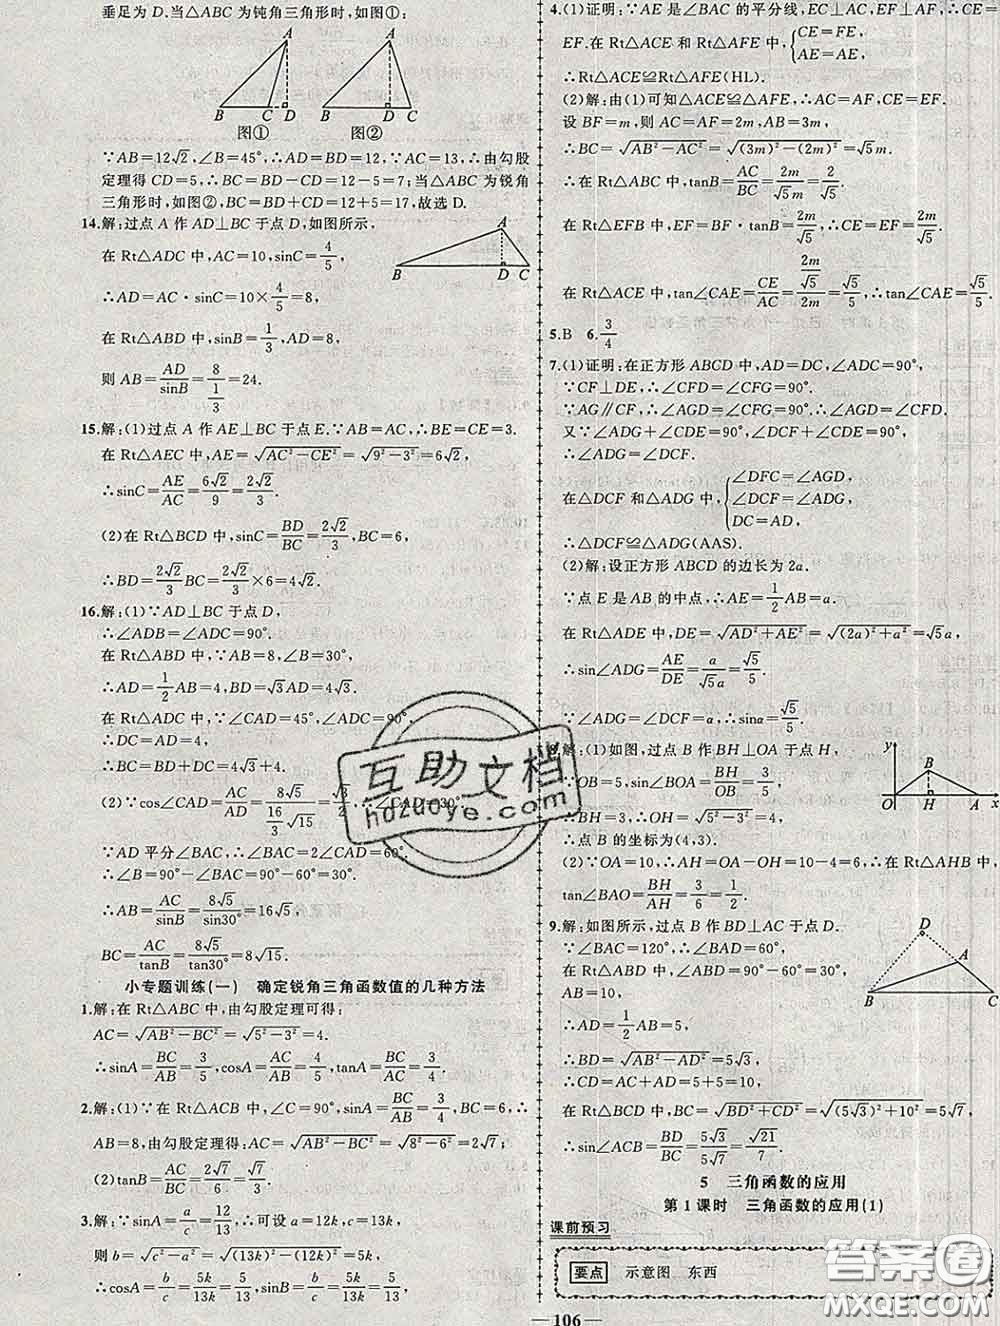 垂足为 D. 当△ABC 为钝角三角形时,如图①:
A
B C D
图①
A
B D C
图②
∵AB=12√2,∠B=45°,∴AD=BD=12,∵AC=13,∴由勾股
定理得 CD=5,∴BC=BD-CD=12-5=7;当△ABC 为锐角
三角形时,如图②,BC=BD+CD=12+5=17,故选 D.
14.解:过点 A 作 AD⊥BC 于点 D,如图所示,
A
B D C
在 Rt△ADC 中,AC=10,sinC=4/5,
∴AD=AC·sinC=10×4/5=8,
在 Rt△ABD 中,sinB=1/3,AD=8,
则 AB=AD/sinB=8/(1/3)=24.
15.解:(1)过点 A 作 AE⊥BC 于点 E.∵AB=AC,∴BE=CE=3.
在 Rt△AEC 中,AE=√(AC²-CE²)=√(9²-3²)=6√2,
∴sinC=AE/AC=6√2/9=2√2/3.
(2)在 Rt△BCD 中,sinC=BD/BC=2√2/3,
∴BD=2√2/3 BC=2√2/3×6=4√2.
16.解:(1)∵AD⊥BC 于点 D,
∴∠ADB=∠ADC=90°.
在 Rt△ABD 中,∵AB=8,∠B=30°,
∴AD=1/2 AB=4,BD=√3AD=4√3.
在 Rt△ADC 中,∵∠CAD=45°,∠ADC=90°.
∴DC=AD=4,
∴BC=BD+DC=4√3+4.
(2)∵cos∠CAD=AC/AD=8√5/(16/3 √15)
∴∠CAD=30°.
∵AD 平分∠BAC,∴∠BAC=2∠CAD=60°.
∴∠B=90°-∠BAC=90°-60°=30°,
∴AB=AC/sinB=8√5/sin30°=16√5,
BC=AC/tanB=8√5/tan30°=8√15.
小专题训练(一) 确定锐角三角函数值的几种方法
1.解:在 Rt△ABC 中,由勾股定理可得:
AC=√(AB²-BC²)=√(5²-3²)=4.
∴sinA=BC/AB=3/5,cosA=AC/AB=4/5,tanA=BC/AC=3/4.
2.解:(1)∵在 Rt△ACB 中,∠C=90°,sinA=BC/AB=3/4,BC=6,∴
AB=8,由勾股定理得:AC=√(AB²-BC²)=√(8²-6²)=2√7;
(2)tanB=AC/BC=2√7/6=√7/3.
3.解:∵sinA=a/c=12/13,∴可设 a=12k,c=13k,
则 b=√(c²-a²)=√((13k)²-(12k)²)=5k,
∴cosA=b/c=5k/13k=5/13,sinB=b/c=5k/13k=5/13.
4.(1)证明:∵AE 是∠BAC 的平分线,EC⊥AC,EF⊥AF,∴CE=
EF.在 Rt△ACE 和 Rt△AFE 中,{CE=FE,
AE=AE,
∴Rt△ACE≌Rt△AFE(HL).
(2)解:由(1)可知△ACE≌△AFE,∴AC=AF,CE=EF.
设 BF=m,则 AC=AF=2m,AB=3m,
∴BC=√(AB²-AC²)=√((3m)²-(2m)²)=√5m.
∴在 Rt△ABC 中,tanB=AC/BC=2m/√5m=2/√5.
在 Rt△EFB 中,EF=BF·tanB=2m/√5,∴CE=EF=2m/√5.
在 Rt△ACE 中,tan∠CAE=CE/AC=(2m/√5)/2m=√5/5,∴tan∠CAE=√5/5.
5.B 6.3/4
7.(1)证明:在正方形 ABCD 中,AD=DC,∠ADC=90°,
∵CF⊥DE,∴∠CFD=∠CFG=90°.
∵AG∥CF,∴∠AGD=∠CFG=90°,∴∠AGD=∠CFD.
又∵∠ADG+∠CDE=90°,∠DCF+∠CDE=90°,
∴∠ADG=∠DCF.
在△DCF 和△ADG 中,{∠DFC=∠AGD,
∠DCF=∠ADG,
DC=AD,
∴△DCF≌△ADG(AAS).
(2)解:设正方形 ABCD 的边长为 2a.
∵点 E 是 AB 的中点,∴AE=1/2 AB=a.
在 Rt△ADE 中,DE=√(AD²+AE²)=√((2a)²+a²)=√5a,
∴sin∠ADG=AE/DE=a/√5a=√5/5.
∵∠ADG=∠DCF=α,∴sinα=√5/5.
解:(1)如图,过点 B 作 BH⊥OA 于点 H,
y
B
O H A x
∵OB=5,sin∠BOA=BH/OB=3/5.
∴BH=3,∴OH=√(5²-3²)=4.
∴点 B 的坐标为(4,3).
(2)∵OA=10,∴AH=OA-OH=10-4=6,∴在 Rt△AHB 中,
tan∠BAO=BH/AH=3/6=1/2.
9.解:如图所示,过点 B 作 BD⊥AC 于点 D.
D
A
B C
∵∠BAC=120°,∴∠BAD=60°,
AB=10,
∴AD=1/2 AB=5,
∴BD=√(AB²-AD²)=5√3,
∴CD=AC+AD=5+5=10,
在 Rt△BCD 中,BC=√(BD²+CD²)=√((5√3)²+10²)=5√7,
∴sin∠ACB=BD/BC=5√3/5√7=√21/7.
5 三角函数的应用
第 1 课时 三角函数的应用(1)
课前预习
要点 示意图 东西
106
互助文档
hdzuoye.com
答案圈
MXQE.COM